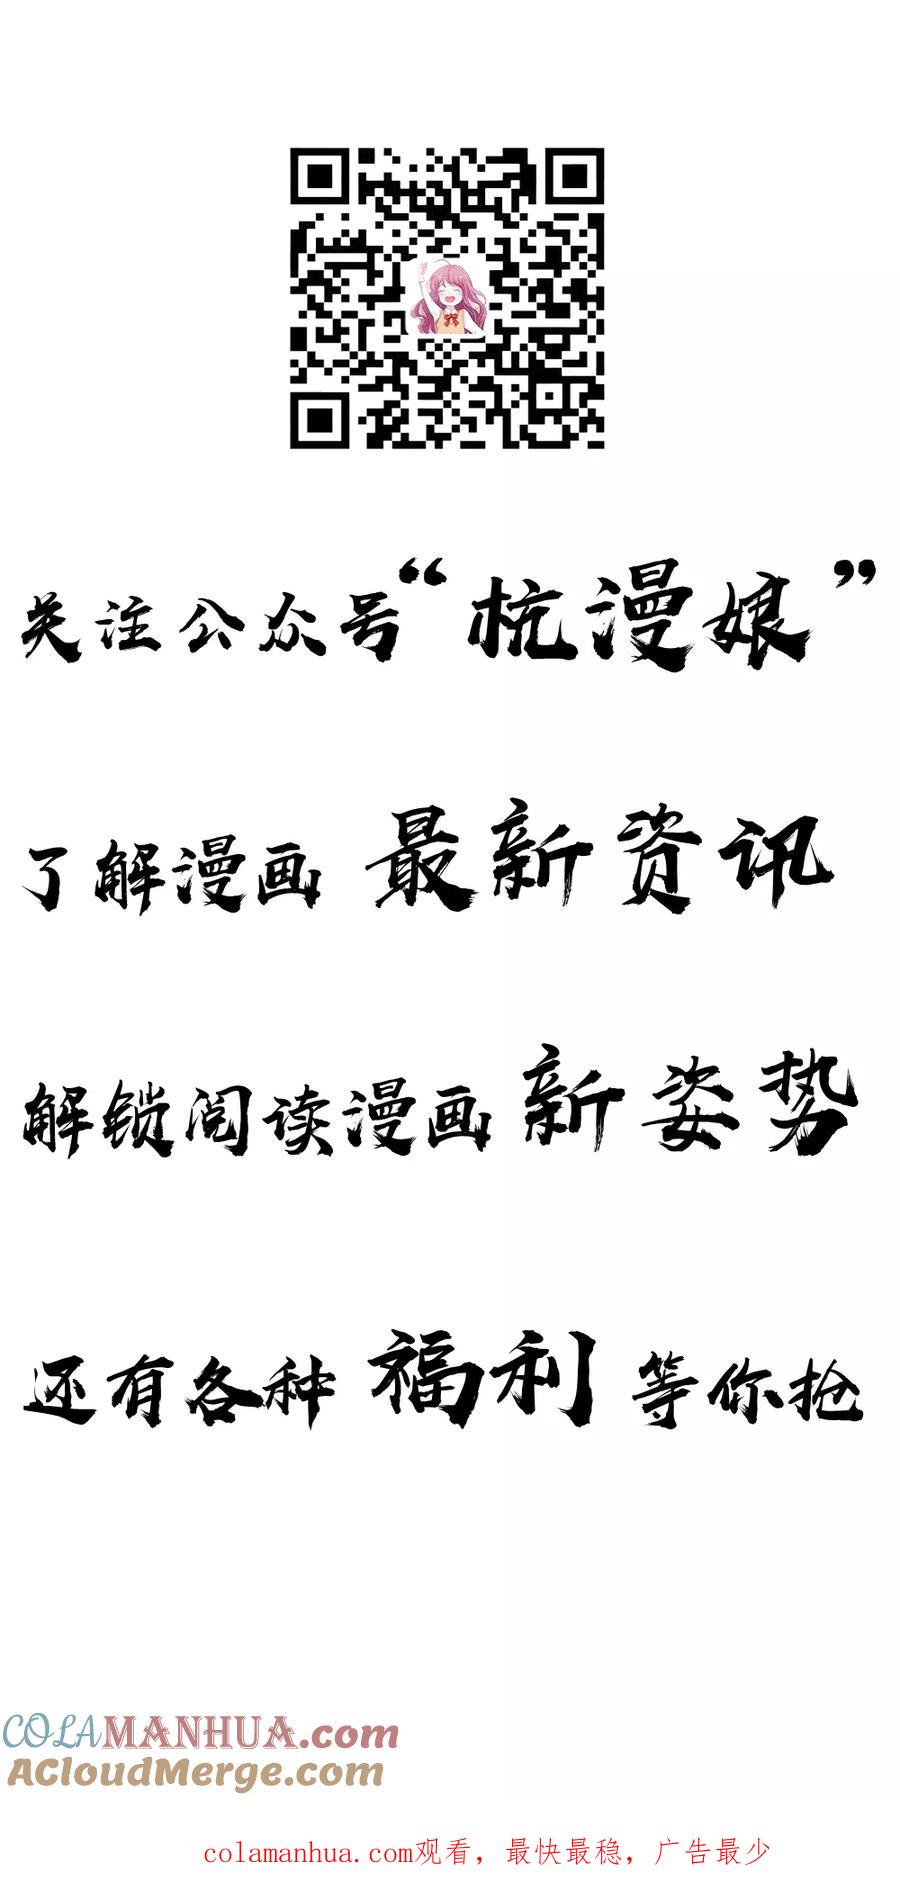 关注公众号“杭漫娘”
了解漫画 最新资讯
解锁阅读漫画 新姿势
还有各种 福利 等你抢
COLAMANHUA.com
ACloudMerge.com
colamanhua.com观看，最快最稳，广告最少